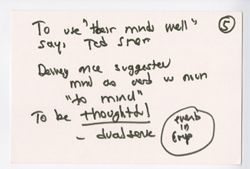 To use "their minds well"
says Ted Sizer
Dewey once suggested
mind as verb w noun
"to mind"
To be thoughtful
- dual sense
5